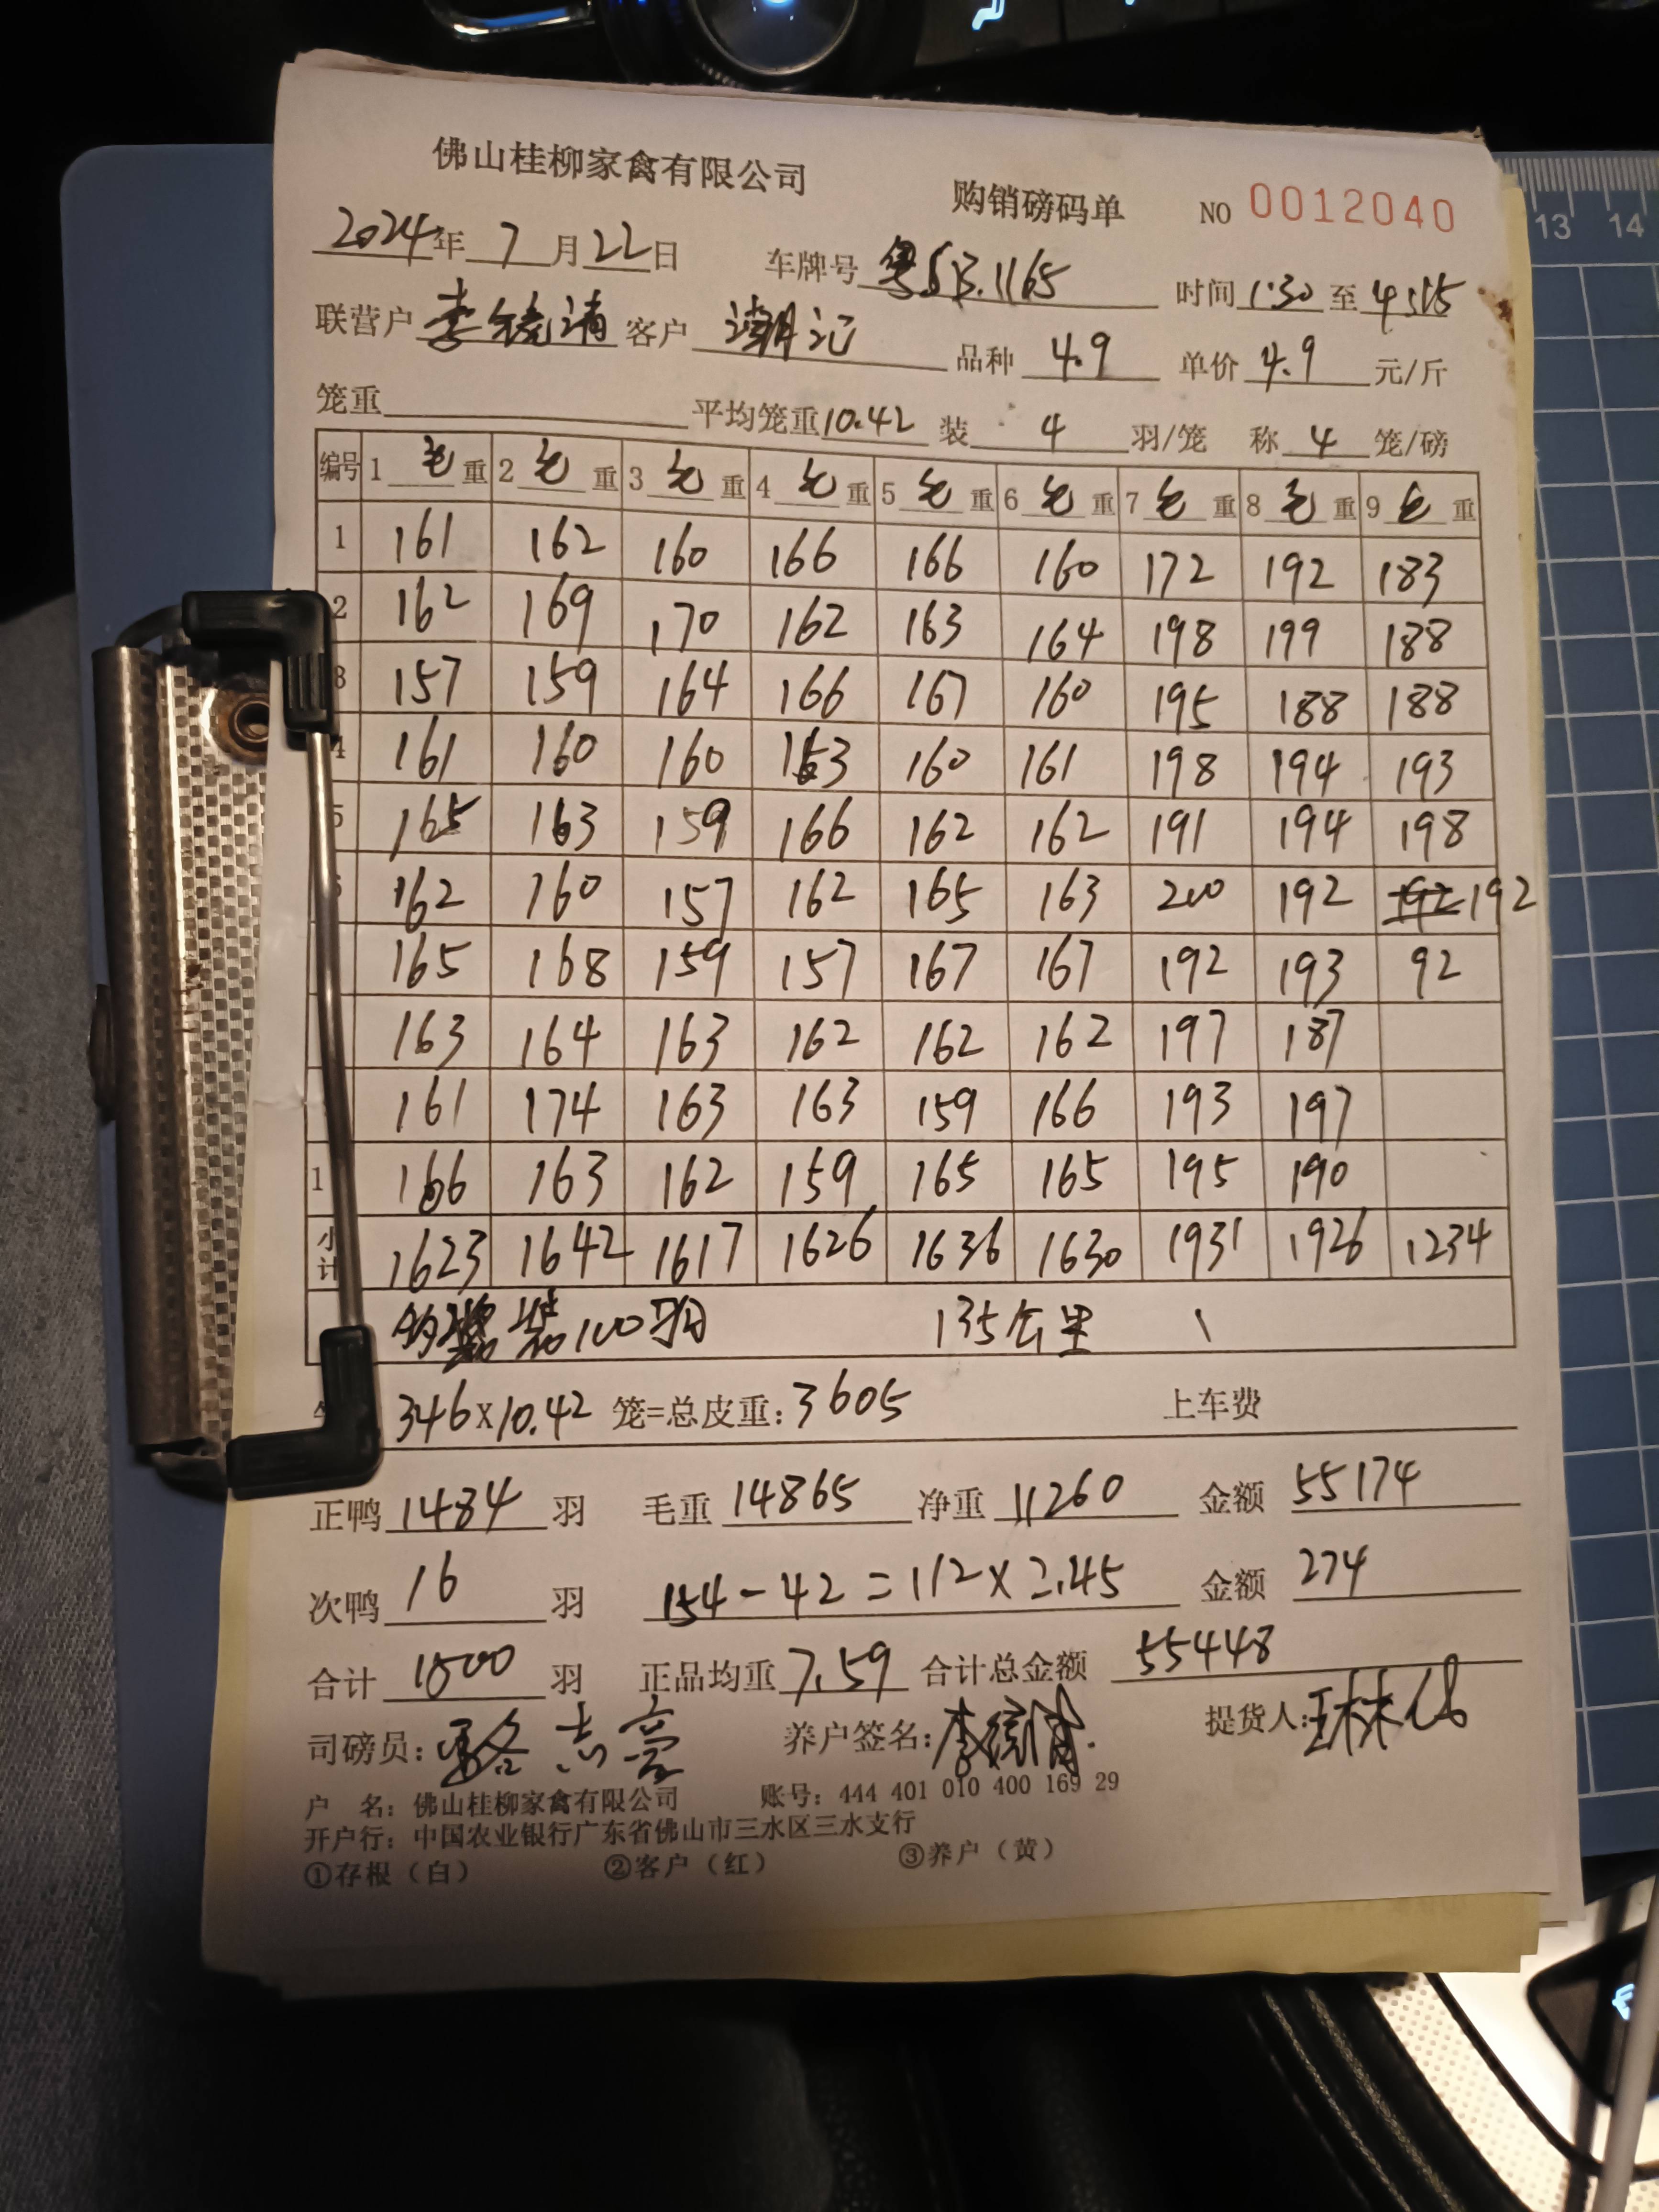 佛山桂柳家禽有限公司 购销磅码单 NO 0012040
2024年 7月 22日 车牌号 粤SB.1165 时间 1:30 至 4:15
联营户 李 清 客户 潮记 品种 4.9 单价 4.9 元/斤
笼重 平均笼重 10.42 装 4 羽/笼 称 4 笼/磅
编号 1 毛重 2 毛重 3 毛重 4 毛重 5 毛重 6 毛重 7 毛重 8 毛重 9 毛重
1 161 162 160 166 166 160 172 192 183
2 162 169 170 162 163 164 198 199 188
3 157 159 164 166 167 160 195 188 188
4 161 160 160 163 160 161 198 194 193
5 165 163 159 166 162 162 191 194 198
162 160 157 162 165 163 200 192 192
165 168 159 157 167 167 192 193 92
163 164 163 162 162 162 197 187
161 174 163 163 159 166 193 197
1 166 163 162 159 165 165 195 190
小计 1623 1642 1617 1626 1636 1630 1931 1926 1234
装100羽 135公里
346×10.42 笼=总皮重: 3605 上车费
正鸭 1484 羽 毛重 14865 净重 11260 金额 55174
次鸭 16 羽 154-42=112×2.45 金额 274
合计 1500 羽 正品均重 7.59 合计总金额 55448
司磅员: 骆志亮 养户签名: 李 提货人:
户 名: 佛山桂柳家禽有限公司 账号: 444 401 010 400 169 29
开户行: 中国农业银行广东省佛山市三水区三水支行
①存根（白） ②客户（红） ③养户（黄）
13 14